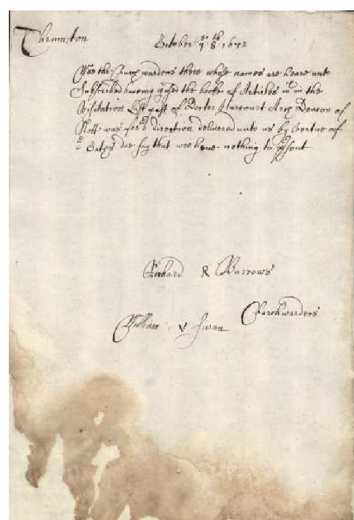 Thrumton
October ye 18th 1672
Wee the Churchwardens there whose names are heare unto
Subscribed having vused the booke of Articles wch in the
Visitation last past of Docter Harcourt Arch Deacon of
Notts: was for or direction delivered unto us by vertue of
or Oathes doe say that wee have nothing to pɼsent
Richard R Barrows
Churchwardens
William V Swan